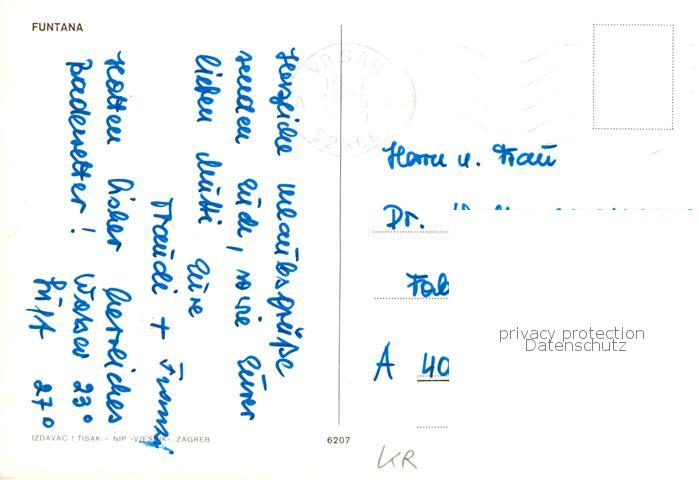 FUNTANA
Herzliche Urlaubsgrüße
senden Euch, sowie Eurer
lieben Mutti Eure
Traudi + Franz
Hatten bisher herrliches
Badewetter! Wasser 23°
Luft 27°
VRSAR
52366
Herrn u. Frau
Dr.
Fab
A 40
privacy protection
Datenschutz
IZDAVAČ I TISAK – NIP «VJESNIK», ZAGREB
6207
KR